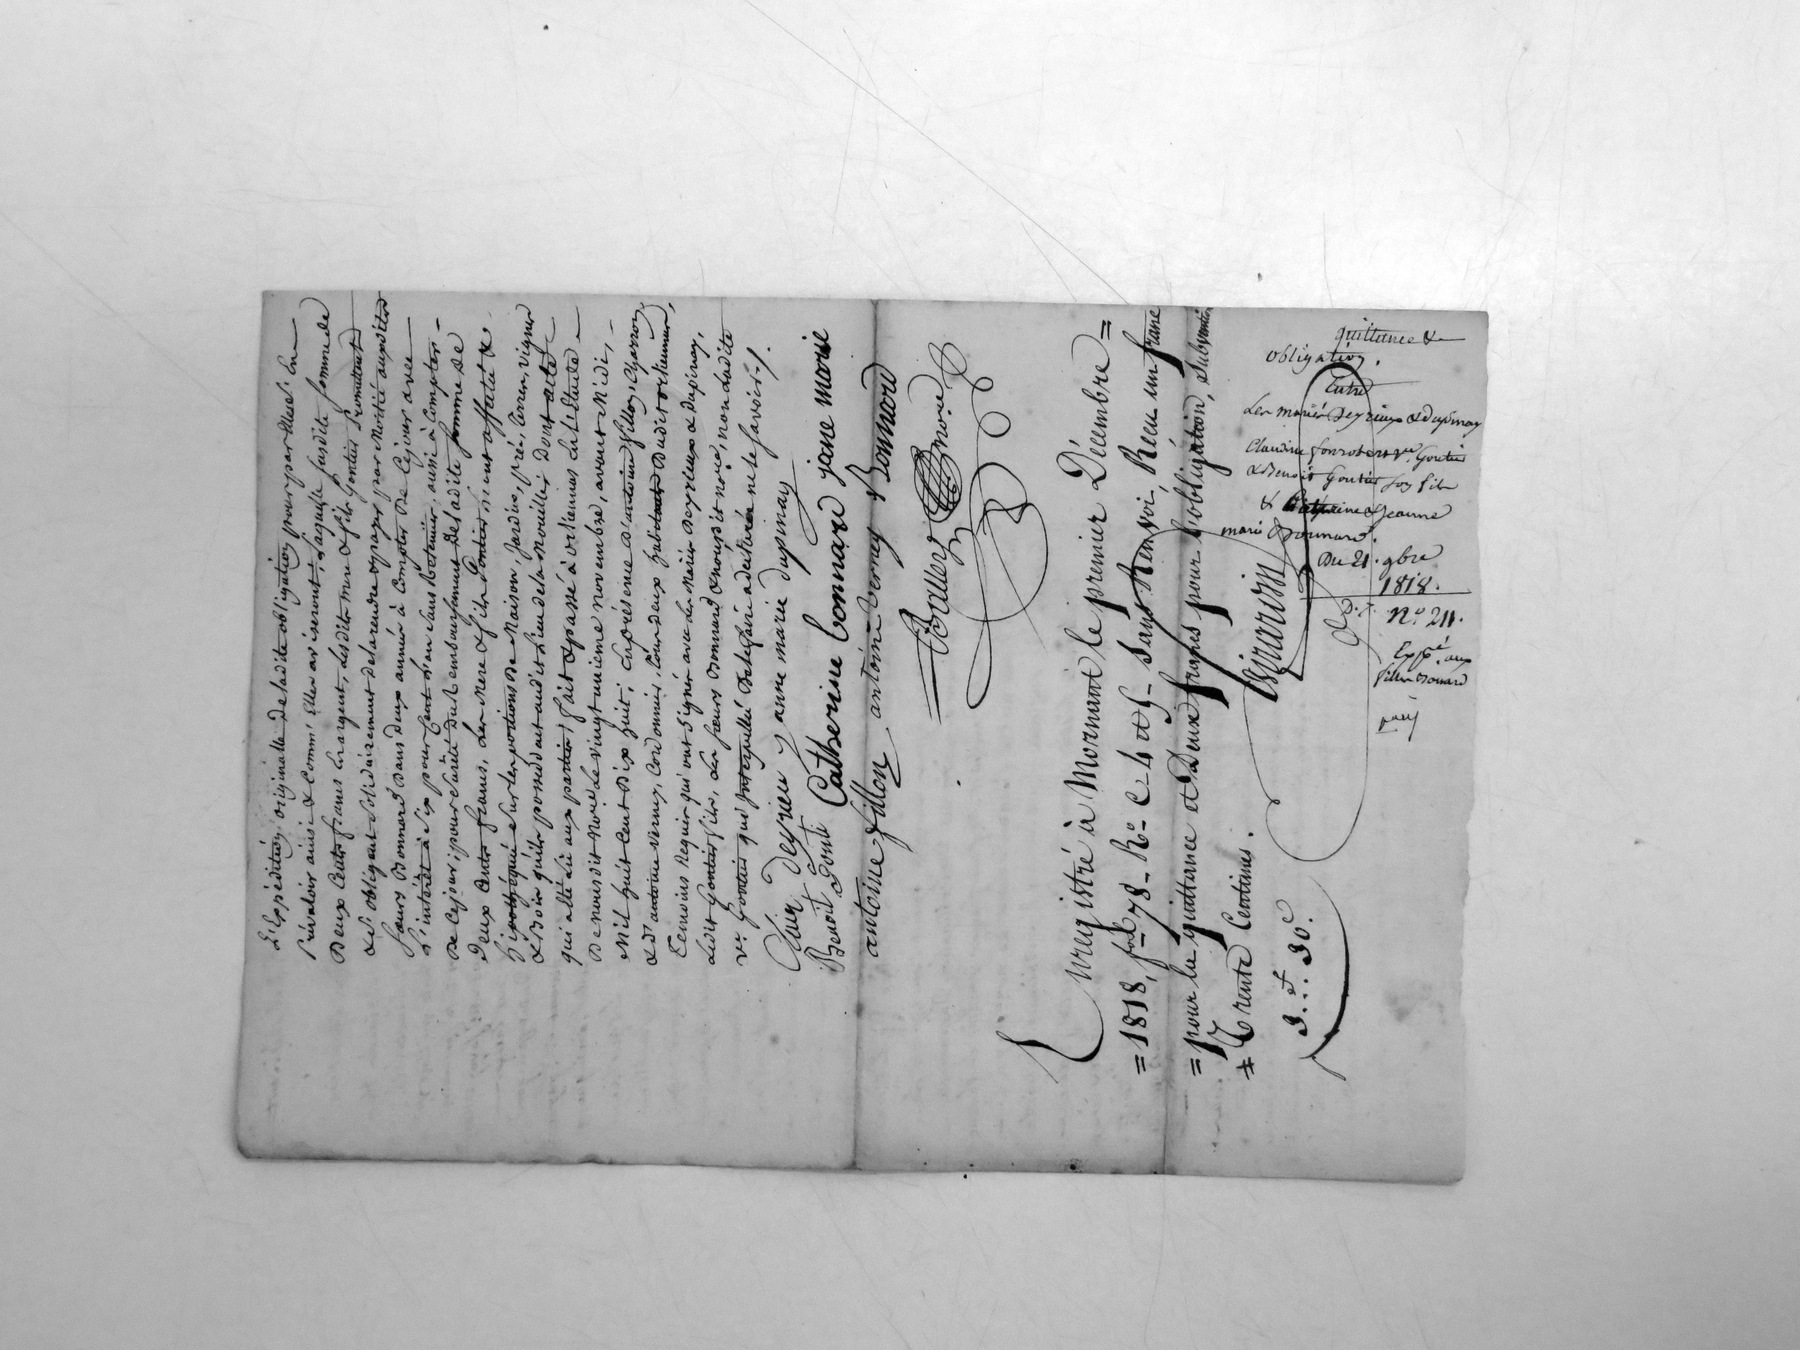 L'Expédition originalle de ladite obligation pour par elles s'en
prévaloir ainsi & comm' Elles aviseront; Laquelle susdite somme de
Deux Cents francs En argent, Lesdits mere & fils Gontier promettent
& s'obligent solidairement de la rendre & payer par moitié auxdites
sœurs Bonnard dans deux années à Compter de Cejour avec
l'intérêt à six pour Cent l'an sans Retenue, aussi à Compter
De Cejour; pour sureté du remboursement de ladite somme de
Deux Cents francs, Les Mere & fils Gontier, ont affecté &
hipothéqué sur les portions de Maison, Jardin, pré, terre, vigne
& Bois qu'ils possèdent audit Lieu de la Nouillis Dont acte
qui a été Lû aux parties, fait & passé à orlienas En L'Etude
De nousdit Nore Le vingt unieme novembre, avant Midi,
Mil huit Cent Dix huit; En présence d'antoine fillon Charron
& d'antoine Verney, Cordonnier, tous deux habitants Dudit orlienas,
Temoins Requis qui ont signé avec les Mariés Deyrieux & Dupinay,
Ledit Gontier fils, Les sœurs Bonnard & nousdit notre, non ladite
Ve. Gontier qui Interpellée De le faire a déclaré ne le savoir./.
Clair Deyrieux anne marie dupinay
Benoit Gonti Catherine bonnard jane marie
antoine fillon antoine verney Bonnard
nore
Enregistré à Mornant le premier Décembre =
= 1818, fol 78 - Ro - C - 4 et 5 - Sans Renvoi, Reçu un franc
= pour la quittance et Deux francs pour l'obligation, Subvention
= Trente Centimes.
3.f 30.c
quittance &
obligation.
Entre
Les mariés Deyrieux & dupinay
Claudine fonrobert ve. Gontier
& Benoit Gontier son fils
& Catherine & Jeanne
marie Bonnard.
Du 21. 9bre
1818.
No. 211.
Expé. aux
filles Bonnard
payé